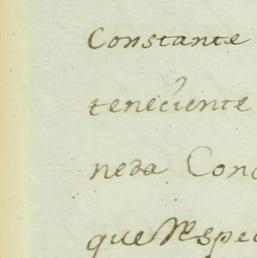 Constante
teneciente
nera Conc
que Respec